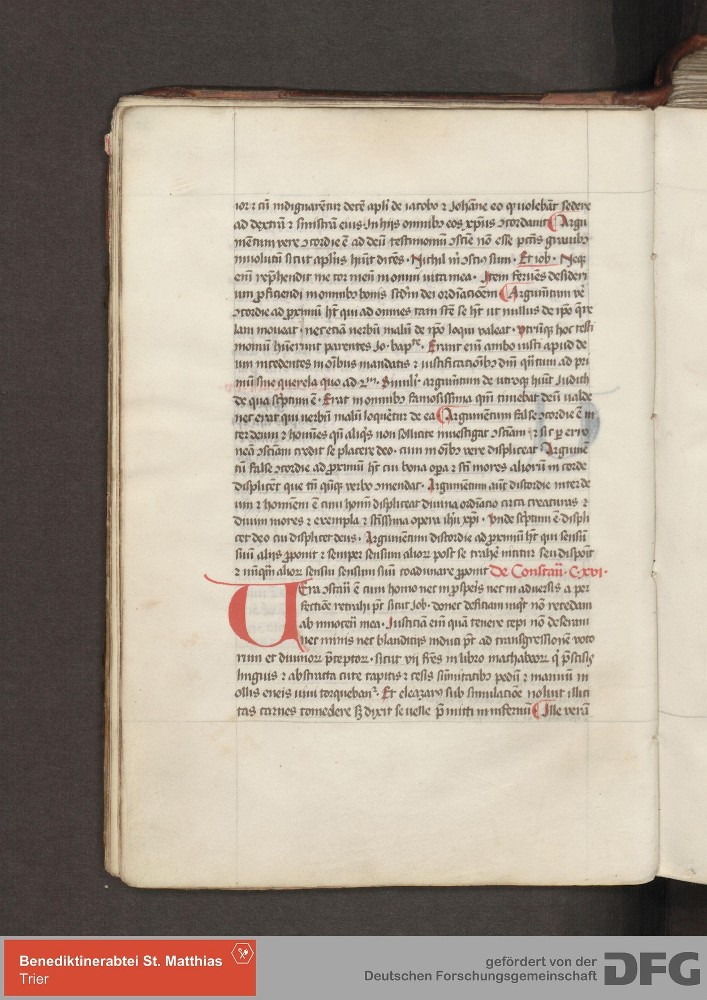 ior ⁊ cū indignarētur decē apl̄i de iacobo ⁊ Johāne eo qꝫ volebāt sedere
ad dextrā ⁊ sinistrā eius· In hijs omnibꝰ eos xp̄us ɔcordauit Argu
mentum vere ɔcordie ē ad deū testimoniū ɔscīe nō esse pctīs grauibꝰ
inuolutū sicut apl̄us hūit dicēs· Nichil m̄ ɔscius sum· Et iob· Neqꝫ
em̄ rep̄hendit me cor meū in omni vita mea· Item feruēs desideri
um ꝓficiendi in omnibꝰ bonis scd̄m dei ordīacioēm Argumētum vē
ɔcordie ad proximū hꝫ qui ad omnes tam scīe se hꝫ ut nullus de ip̄o q̄re
lam moueat· nec etiā verbū malū de ip̄o loqui valeat· vtrūqꝫ hoc testi
moniū hūerunt parentes Jo· bapᵗᵉ· Erant em̄ ambo iusti apud de
um incedentes in oībus mandatis ⁊ iustificacioībꝰ dn̄i q̄ntum ad pri
mū sine querela quo ad 2ᵐ· Simili· argumētum de utroqꝫ hūit Judith
de qua scp̄tum ē· Erat in omnibꝰ famosissima qm̄ timebat deū valde
nec erat qui verbū malū loqueretur de ea Argumētum false ɔcordie ē in
ter deum ⁊ homīes qn̄ aliqͥs non sollicite inuestigat ɔsciām· ⁊ sic ꝑ erro
neā ɔsciam credit se placere deo· cum in oībꝰ vere displiceat Argumē
tū false ɔcordie ad proximū hꝫ cui bona oꝑa ⁊ sc̄i mores aliorū in corde
displicēt que tn̄ qn̄qꝫ verbo ɔmendat· Argumētum aut̄ discordie inter de
um ⁊ hominem ē cum homī displiceat diuina ordīacio circa creaturas ⁊
diuini mores ⁊ exempla ⁊ sc̄issima opera ihū xp̄i· Vnde scp̄tum ē· displi
cet deo cui displicet deus· Argumētum discordie ad proximū hꝫ qui sensū
suū alijs ꝓponit ⁊ semper sensum alioꝝ post se trahē nititur seu disponit
⁊ nūqͣm alioꝝ sensui sensum suū coadunare ꝓponit De Constan̄· C· xvi·
Vera ɔstan̄ ē cum homo nec in ꝓspēis nec in aduersis a per
fectiōe retrahi pt̄ sicut Job· donec deficiam inqͥt nō recedam
ab innocen̄ mea· Justiciā em̄ quā tenere cepi nō deseram
nec minis nec blandicijs induci pt̄ ad transgressionē voto
rum et diuinoꝝ p̄ceptoꝝ· sicut vij frēs in libro machabeoꝝ qͥ p̄scisis
linguis ⁊ abstracta cute capitis ⁊ cesis summitatibꝰ pedū ⁊ manuū in
ollis eneis viui torquebant̄· Et eleazarꝰ sub simulacōe noluit illici
tas carnes comedere sꝫ dixit se velle p̄mitti in infernū Ille verā
Benediktinerabtei St. Matthias
Trier
gefördert von der
Deutschen Forschungsgemeinschaft
DFG